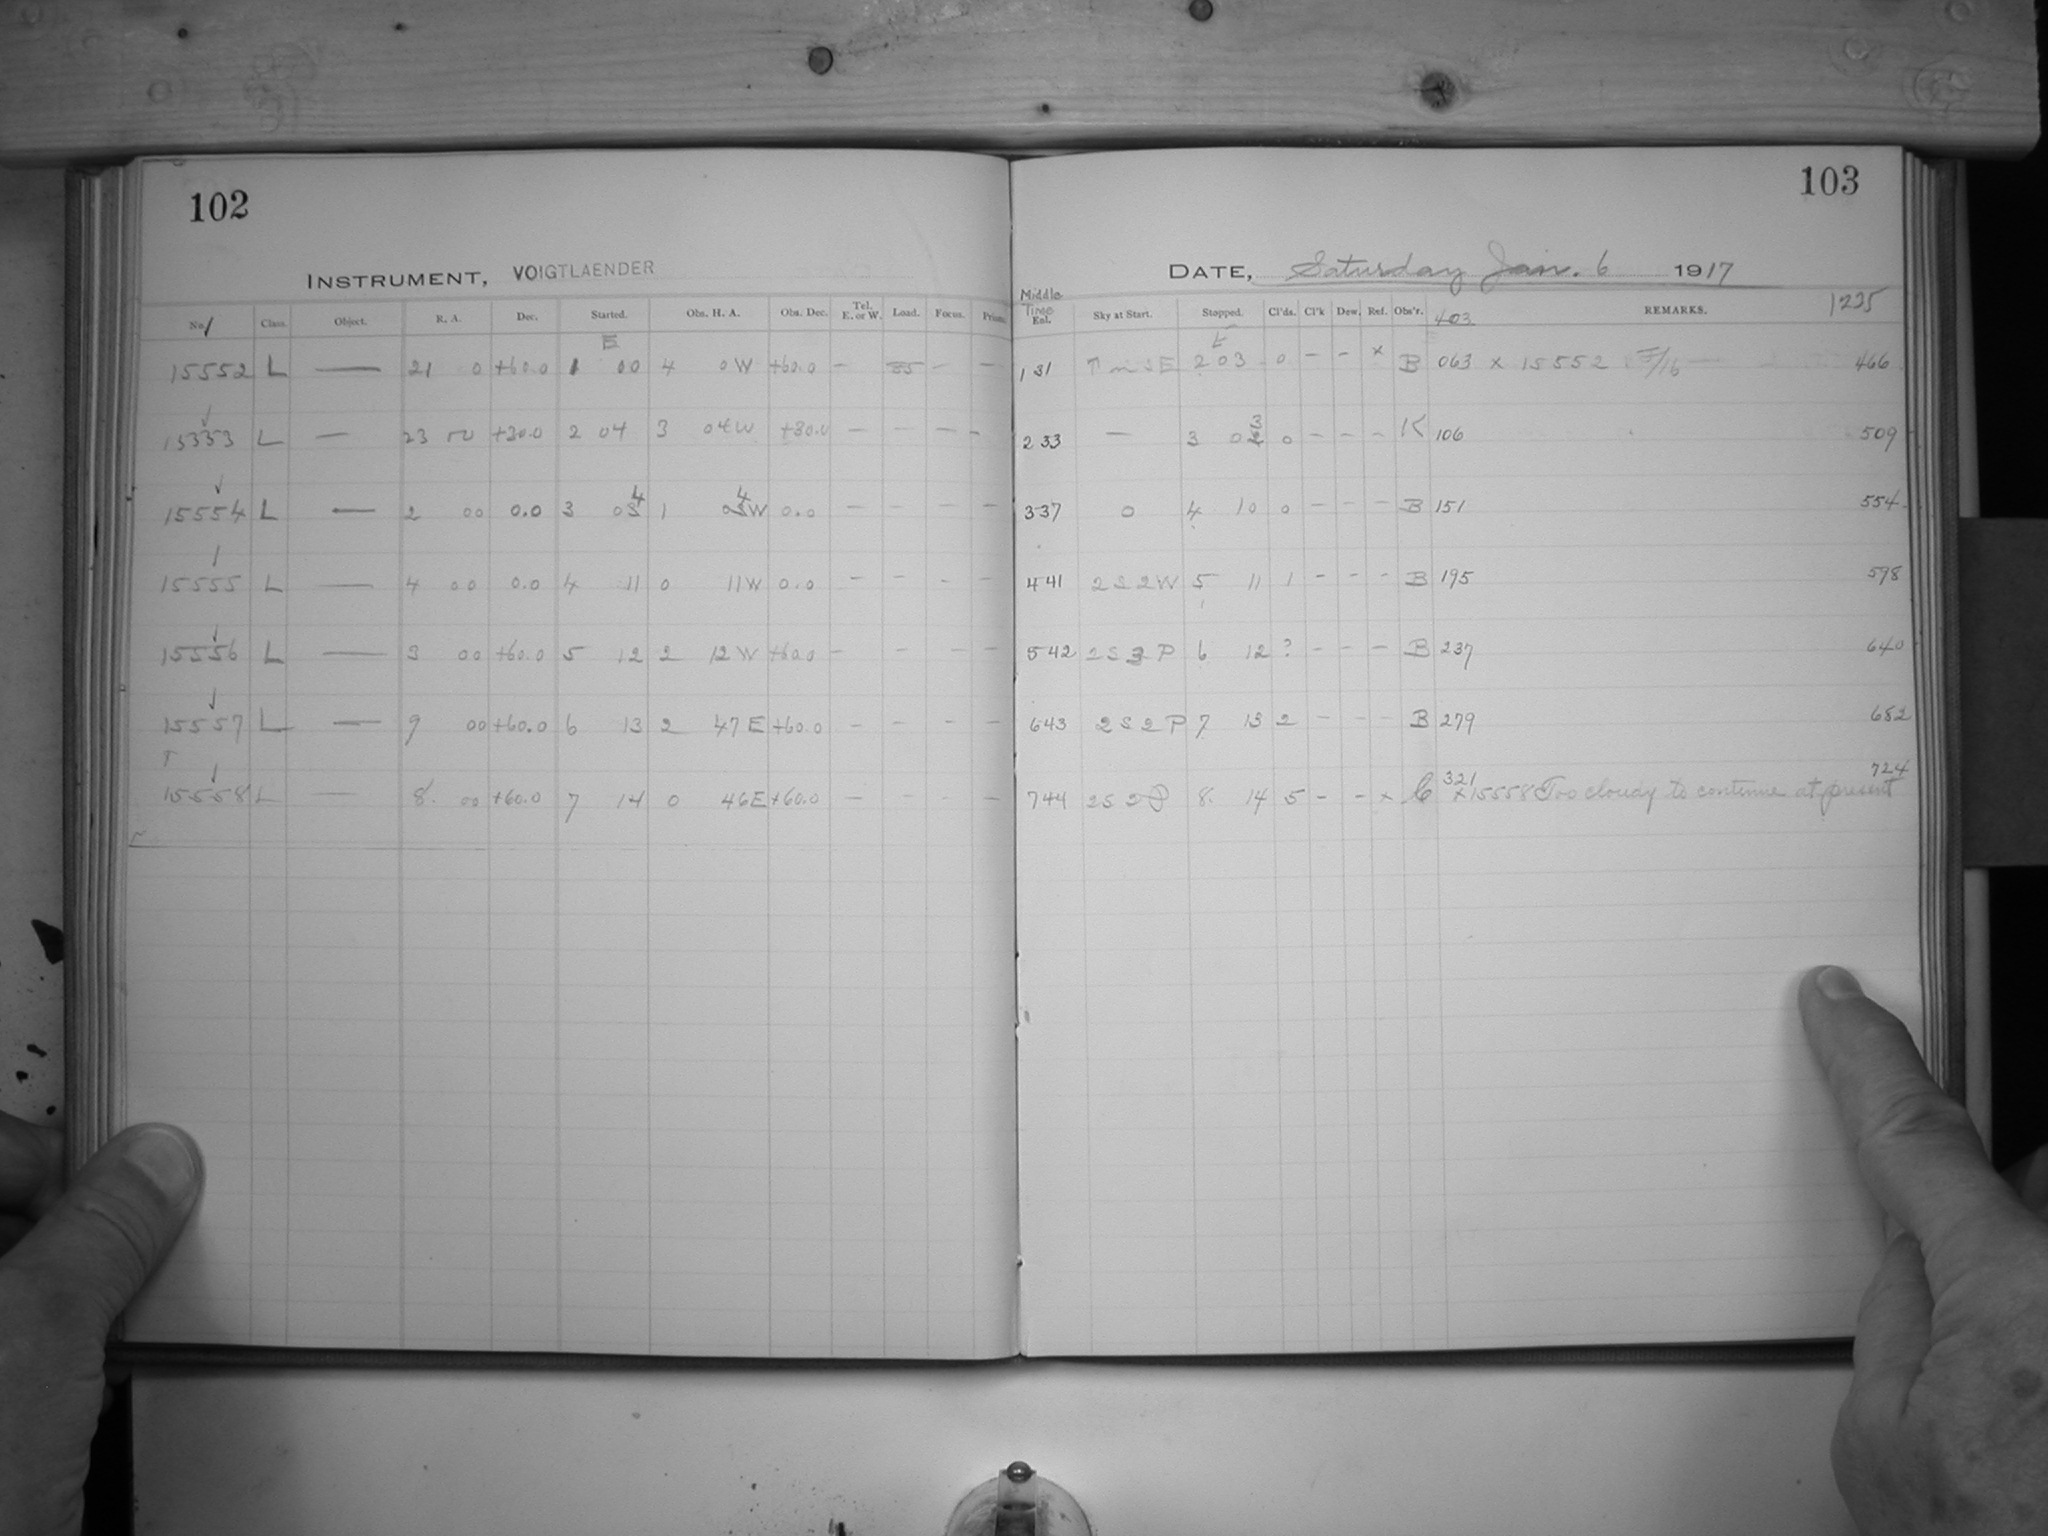 102
INSTRUMENT, VOIGTLAENDER
No. Class. Object. R. A. Dec. Started. Obs. H. A. Obs. Dec. Tel. E. or W. Load. Focus. Prism.
E
15552 L — 21 0 +60.0 1 00 4 0 W +60.0 — 35 — —
15553 L — 23 00 +30.0 2 04 3 04 W +30.0 — — — —
15554 L — 2 00 0.0 3 04 1 04 W 0.0 — — — —
15555 L — 4 00 0.0 4 11 0 11 W 0.0 — — — —
15556 L — 3 00 +60.0 5 12 2 12 W +60.0 — — — —
15557 L — 9 00 +60.0 6 13 2 47 E +60.0 — — — —
15558 L — 8. 00 +60.0 7 14 0 46 E +60.0 — — — —
103
DATE, Saturday Jan. 6 1917
Middle Time 1235
Enl. Sky at Start. Stopped. Cl'ds. Cl'k Dew. Ref. Obs'r. 403 REMARKS.
E
1 31 2 03 0 — — x B 063 x 15552 F/16 — 466
2 33 — 3 03 0 — — — K 106 509
3 37 0 4 10 0 — — — B 151 554
4 41 2 S 2 W 5 11 1 — — — B 195 598
5 42 2 S 3 P 6 12 ? — — — B 237 640
6 43 2 S 2 P 7 13 2 — — — B 279 682
7 44 2 S 2 P 8. 14 5 — — x C 321 x 15558 Too cloudy to continue at present 724